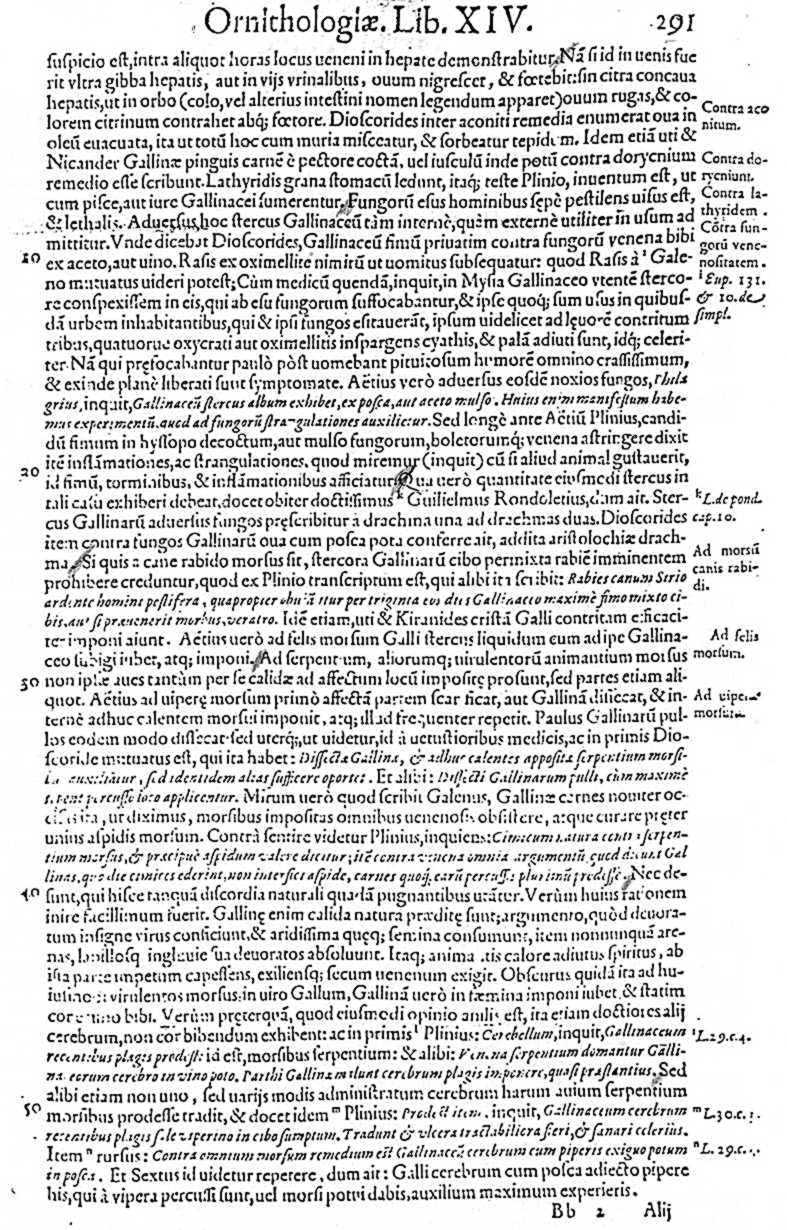 Ornithologiæ. Lib. XIV. 291
suspicio est, intra aliquot horas locus ueneni in hepate demonstrabitur. Nã si id in uenis fue
rit vltra gibba hepatis, aut in vijs vrinalibus, ouum nigrescet, & fœtebit: sin citra concaua
hepatis, ut in orbo (colo, vel alterius intestini nomen legendum apparet) ouum rugas, & co-
lorem citrinum contrahet absq; fœtore. Dioscorides inter aconiti remedia enumerat oua in
Contra aco
nitum.
oleũ euacuata, ita ut totũ hoc cum muria misceatur, & sorbeatur tepidum. Idem etiã uti &
Nicander Gallinæ pinguis carnẽ è pectore coctã, uel iusculũ inde potũ contra dorycnium
Contra do-
rycniunt.
remedio esse scribunt. Lathyridis grana stomacũ ledunt, itaq; teste Plinio, inuentum est, ut
cum pisce, aut iure Gallinacei sumerentur. Fungorũ esus hominibus sępè pestilens uisus est,
Contra la-
thyridem.
& lethalis. Aduersus hoc stercus Gallinaceũ tàm internè, quàm externè utiliter in usum ad
Cõtra fun-
gorũ vene-
nositatem.
mittitur. Vnde dicebat Dioscorides, Gallinaceũ fimũ priuatim contra fungorũ venena bibi
10 ex aceto, aut uino. Rasis ex oximellite nimirũ ut uomitus subsequatur: quod Rasis à l Gale-
no mutuatus uideri potest; Cùm medicũ quendã, inquit, in Mysia Gallinaceo vtentẽ sterco-
l Eup. 131.
& 10. de
simpl.
re conspexissem in eis, qui ab esu fungorum suffocabantur, & ipse quoq; sum usus in quibus-
dã urbem inhabitantibus, qui & ipsi fungos esitauerãt, ipsum uidelicet ad lęuorẽ contritum
tribus, quatuorue oxycrati aut oximellitis inspargens cyathis, & palã adiuti sunt, idq; celeri-
ter. Nã qui pręfocabantur paulò pòst uomebant pituitosum humorẽ omnino crassissimum,
& exinde planè liberati sunt symptomate. Aëtius verò aduersus eosdẽ noxios fungos, Phila
grius, inquit, Gallinaceũ stercus album exhibet, ex posca, aut aceto mulso. Huius enim manifestum habe-
mus experimentũ, quod ad fungorũ strangulationes auxilietur. Sed longè ante Aëtiũ Plinius, candi-
dũ fimum in hyssopo decoctum, aut mulso fungorum, boletorumq; venena astringere dixit
20 itẽ inflãmationes, ac strangulationes. quod miremur (inquit) cũ si aliud animal gustauerit,
id fimũ, torminibus, & inflãmationibus afficiatur. Qua uerò quantitate eiusmodi stercus in
tali casu exhiberi debeat, docet obiter doctissimus k Guilielmus Rondoletius, dum ait. Ster-
k L. de pond.
cap. 10.
cus Gallinarũ aduersus fungos pręscribitur à drachma una ad drachmas duas. Dioscorides
item contra fungos Gallinarũ oua cum posca pota conferre ait, addita aristolochiæ drach-
ma. Si quis a cane rabido morsus sit, stercora Gallinarũ cibo permixta rabiẽ imminentem
Ad morsũ
canis rabi-
di.
prohibere creduntur, quod ex Plinio transcriptum est, qui alibi ita scribit: Rabies canum Sirio
ardente homini pestifera, quapropter obuiã itur per triginta eos dies Gallinaceo maximè fimo mixto ci-
bis, aut si præuenerit morbus, veratro. Idẽ etiam, uti & Kiranides cristã Galli contritam efficaci-
ter imponi aiunt. Aëtius uerò ad felis morsum Galli stercus liquidum cum adipe Gallina-
Ad felis
morsum.
ceo subigi iubet, atq; imponi. Ad serpentum, aliorumq; uirulentorũ animantium morsus
30 non ipsæ aues tantùm per se calidæ ad affectum locũ impositę prosunt, sed partes etiam ali-
quot. Aëtius ad uiperę morsum primò affectã partem scarificat, aut Gallinã dissecat, & in-
Ad vipe
morsum.
ternè adhuc calentem morsui imponit, atq; illud frequenter repetit. Paulus Gallinarũ pul-
los eodem modo dissecat sed uterq;, ut uidetur, id à uetustioribus medicis, ac in primis Dio-
scoride mutuatus est, qui ita habet: Dissecta Gallina, & adhuc calentes apposita serpentium morsi-
auxiliatur, sed identidem alias sufficere oportet. Et alibi: Dissecti Gallinarum pulli, cùm maximè
tepent percusso loco applicentur. Mirum uerò quod scribit Galenus, Gallinæ carnes nouiter oc-
cisæ ita, ut diximus, morsibus impositas omnibus uenenosis obsistere, atque curare pręter
unius aspidis morsum. Contrà sentire videtur Plinius, inquiens: Cimicum natura contra serpen-
tium morsus, & præcipuè aspidum valere dicitur; itẽ contra venena omnia argumentũ, quod dicunt Gal
linas, quo die cimices ederint, non interfici aspide, carnes quoq; earũ percussis plurimũ prodesse. Nec de-
40 sunt, qui hisce tanquã discordia naturali quadã pugnantibus utãtur. Verùm huius rationem
inire facillimum fuerit. Gallinę enim calida natura præditę sunt; argumento, quòd deuora-
tum insigne virus conficiunt, & aridissima quęq; semina consumunt, item nonnunquã are-
nas, lapillosq ingluuie sua deuoratos absoluunt. Itaq; animantis calore adiutus spiritus, ab
ista parte impetum capessens, exiliensq; secum uenenum exigit. Obscurus quidã ita ad hu-
iusmodi virulentos morsus: in uiro Gallum, Gallinã uerò in fæmina imponi iubet, & statim
cor è uino bibi. Verùm pręterquã, quod eiusmodi opinio anilis est, ita etiam doctiores alij
cerebrum, non cor bibendum exhibent: ac in primis l Plinius: Cerebellum, inquit, Gallinaceum
l L. 29. c. 4.
recentibus plagis prodest: id est, morsibus serpentium: & alibi: Venena serpentium domantur Galli-
na eorum cerebro in vino poto. Parthi Gallinæ malunt cerebrum plagis imponere, quasi præstantius. Sed
alibi etiam non uno, sed uarijs modis administratum cerebrum harum auium serpentium
50 morsibus prodesse tradit, & docet idem m Plinius: Prodest item, inquit, Gallinaceum cerebrum
m L. 30. c.
recentibus plagis sale vsperino in cibo sumptum. Tradunt & vlcera tractabiliora fieri, & sanari celerius.
Item n rursus: Contra omnium morsum remedium est Gallinaceũ cerebrum cum piperis exiguo potum
n L. 29. c.
in posca. Et Sextus id uidetur repetere, dum ait: Galli cerebrum cum posca adiecto pipere
his, qui à vipera percussi sunt, uel morsi potui dabis, auxilium maximum experieris.
Bb 2 Alij